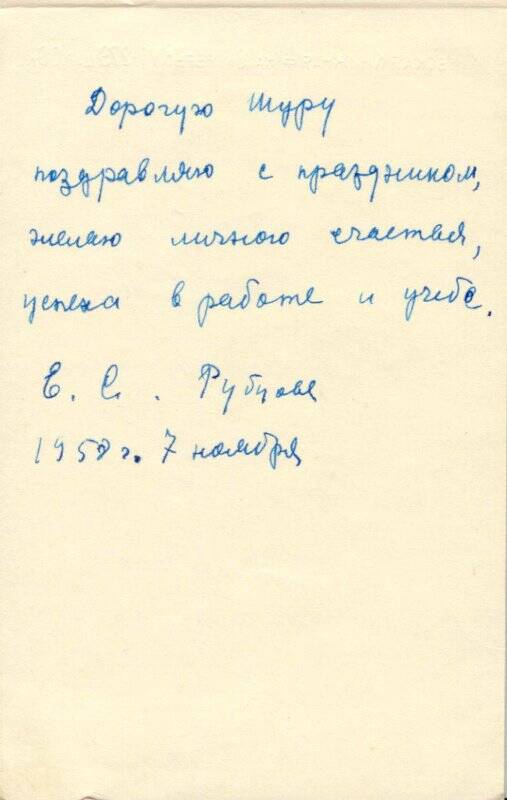 Дорогую Шуру
поздравляю с праздником,
желаю личного счастья,
успеха в работе и учебе.
Е. С. Рубцова
1958 г. 7 ноября